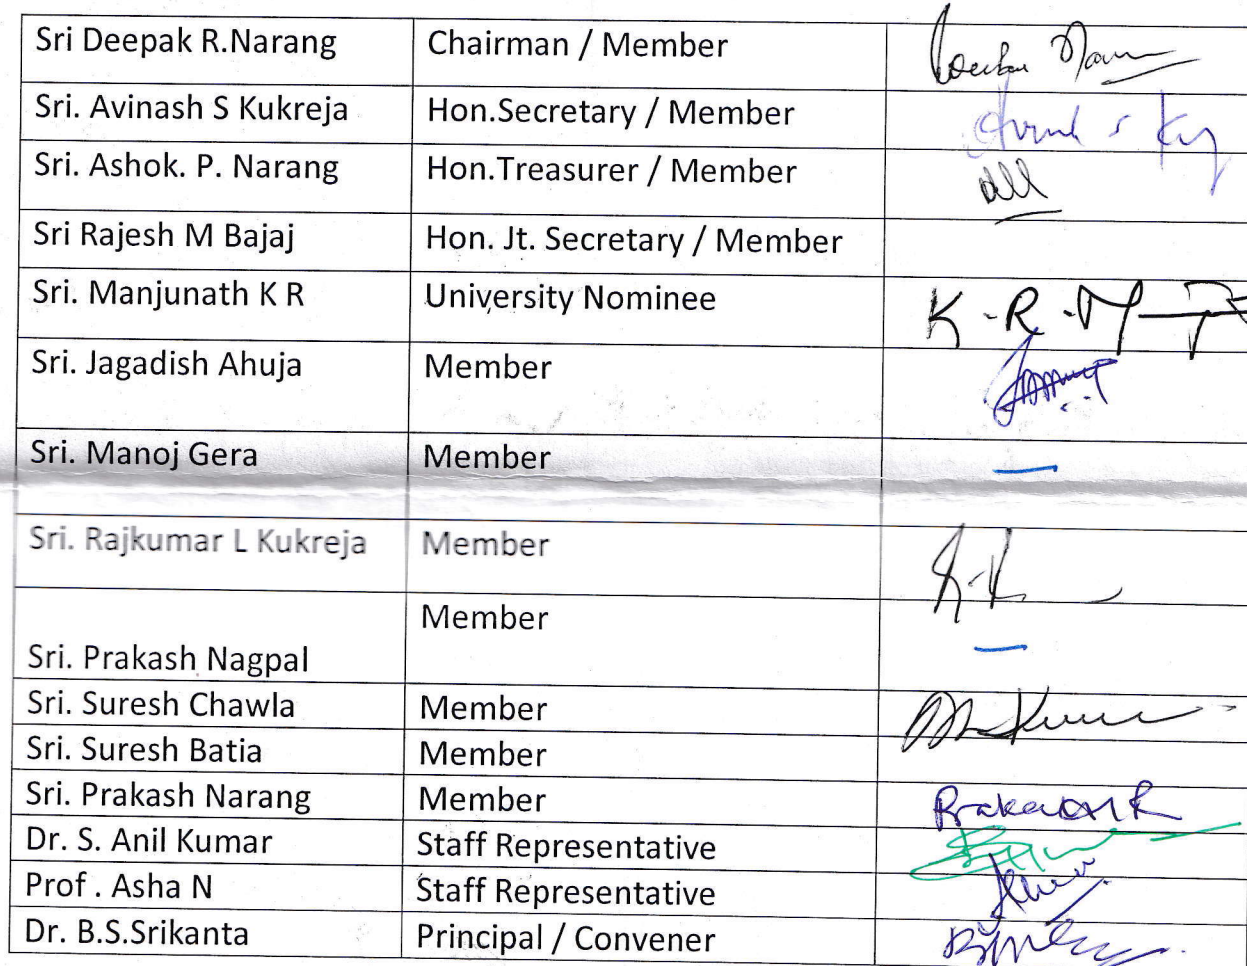 Sri Deepak R.Narang Chairman / Member
Sri. Avinash S Kukreja Hon.Secretary / Member
Sri. Ashok. P. Narang Hon.Treasurer / Member
Sri Rajesh M Bajaj Hon. Jt. Secretary / Member
Sri. Manjunath K R University Nominee K-R-M
Sri. Jagadish Ahuja Member
Sri. Manoj Gera Member
Sri. Rajkumar L Kukreja Member
Member
Sri. Prakash Nagpal
Sri. Suresh Chawla Member
Sri. Suresh Batia Member
Sri. Prakash Narang Member
Dr. S. Anil Kumar Staff Representative
Prof . Asha N Staff Representative
Dr. B.S.Srikanta Principal / Convener